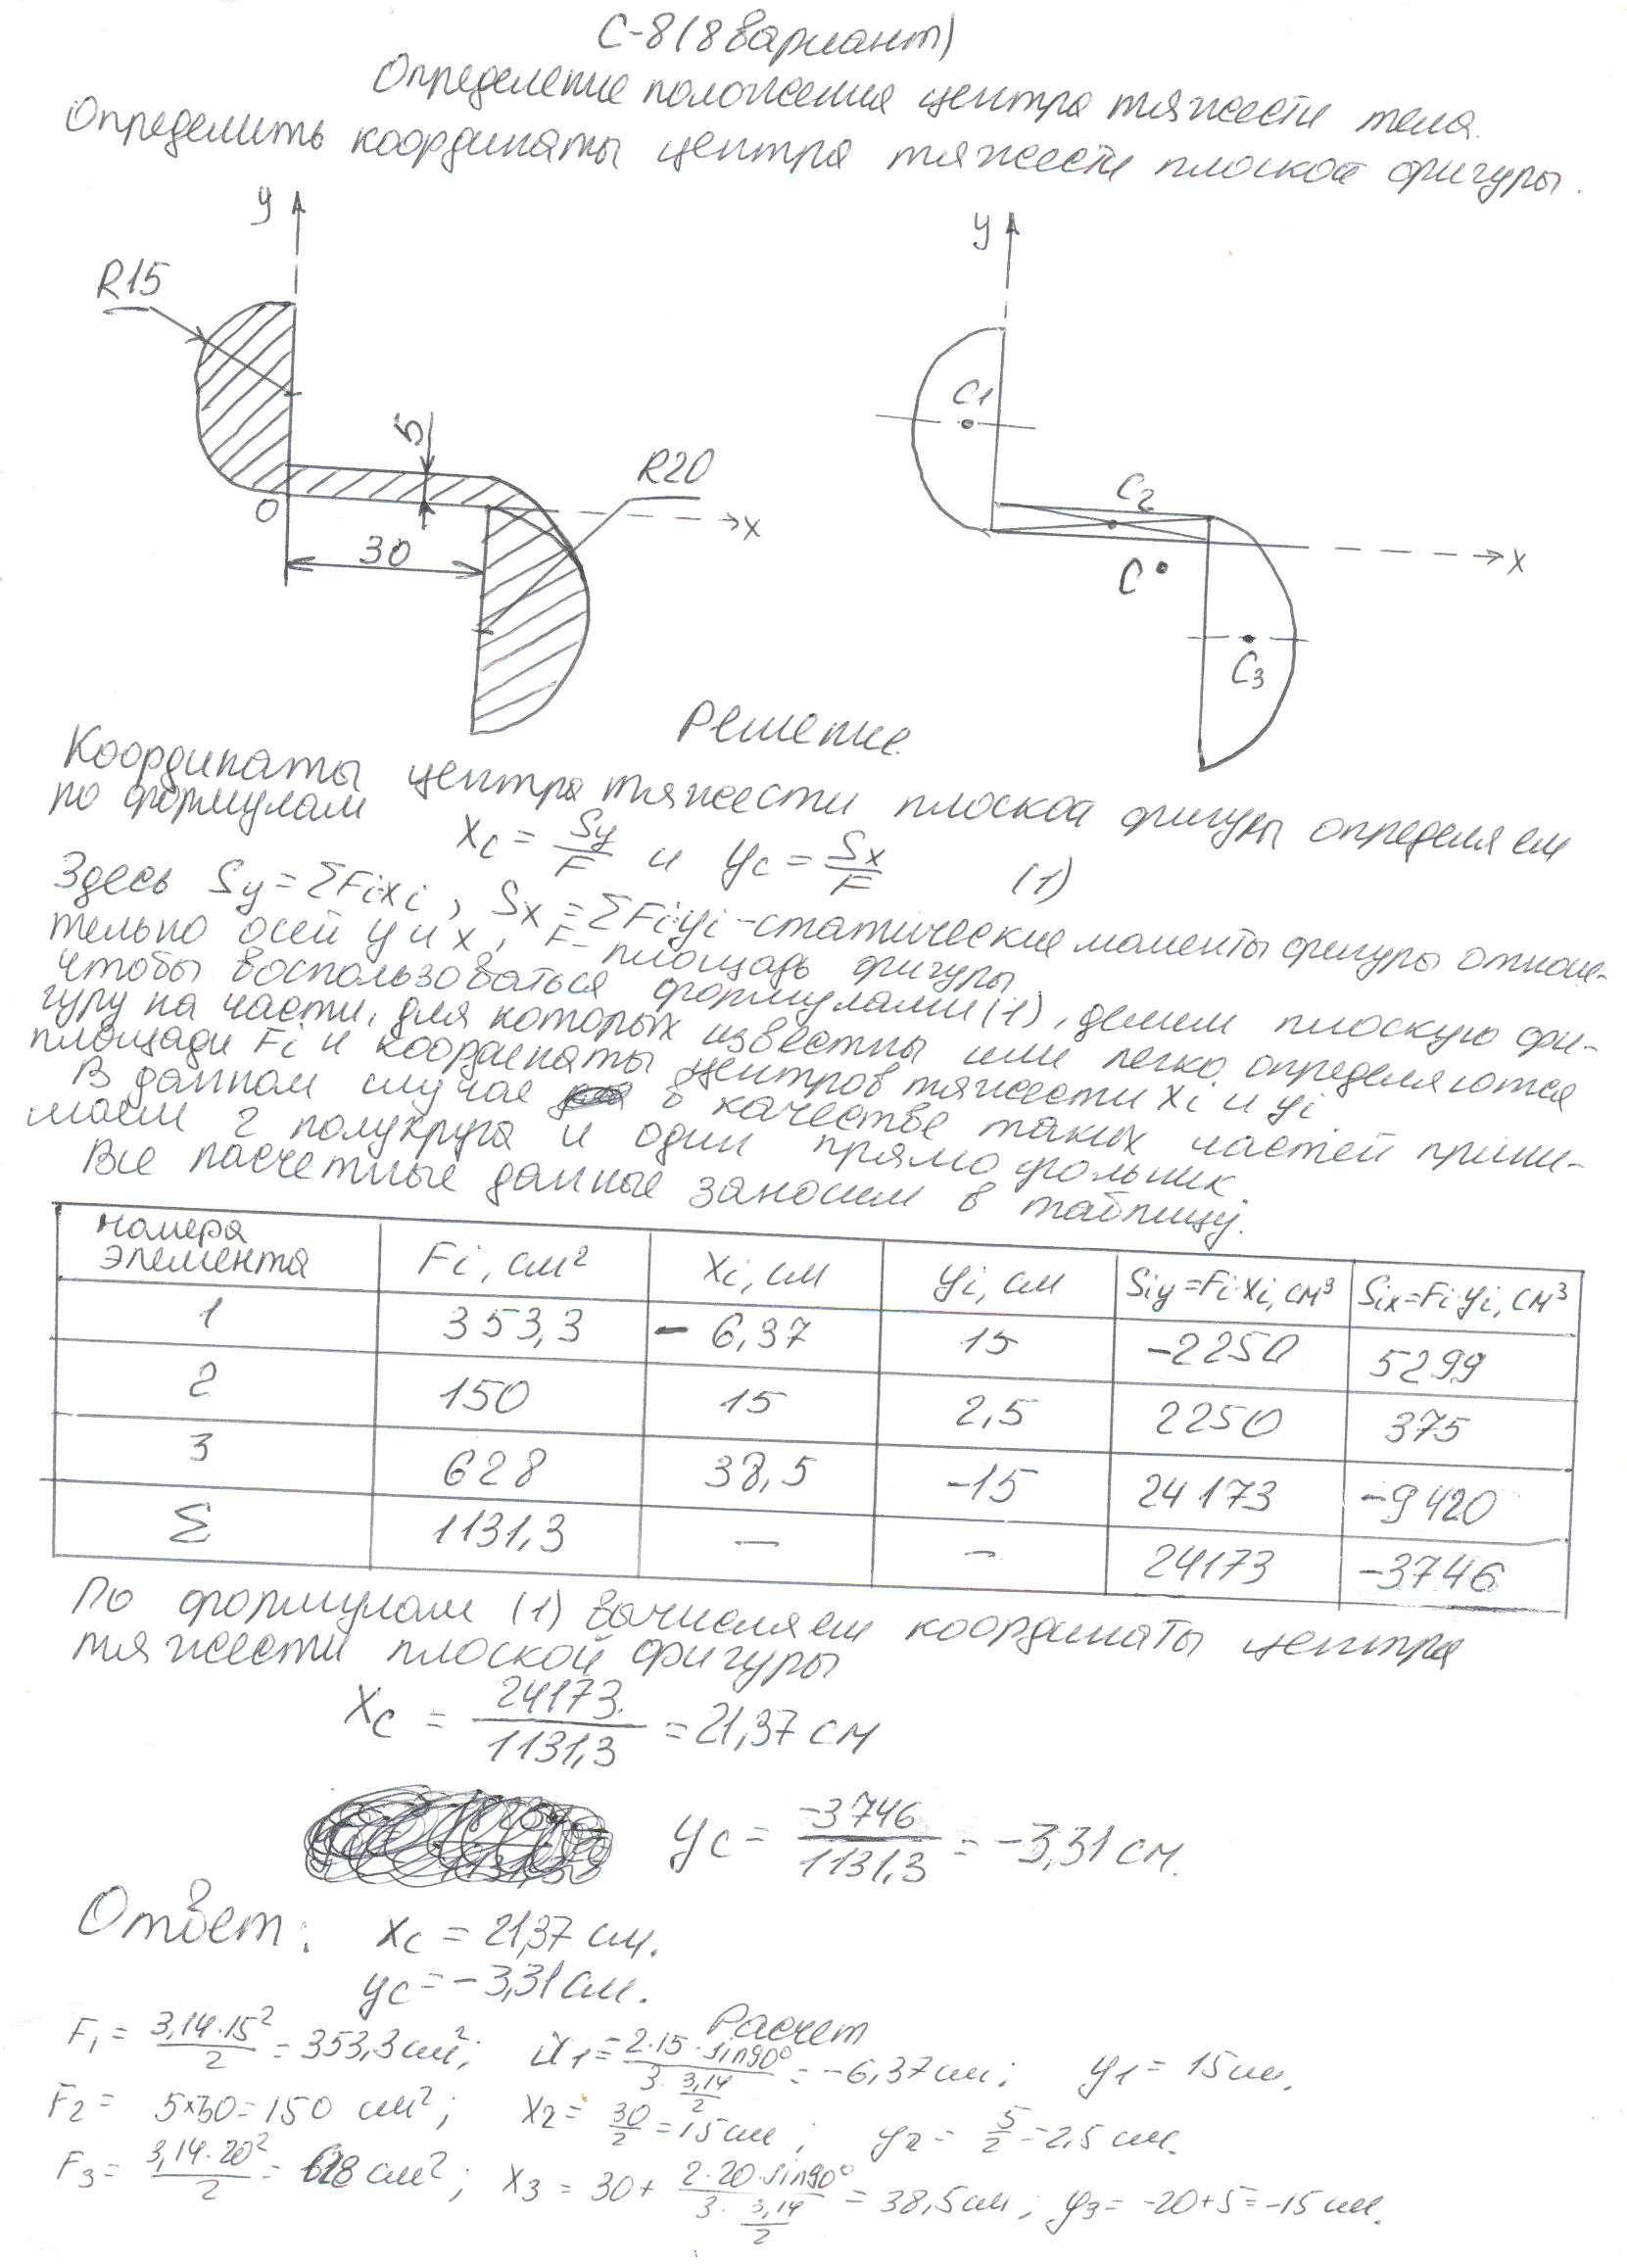 С-8 (8 вариант)
Определение положения центра тяжести тела.
Определить координаты центра тяжести плоской фигуры.
y
R15
5
R20
O
x
30
y
C1
C2
C
x
C3
Решение.
Координаты центра тяжести плоской фигуры определяем
по формулам
Xc = Sy/F и yc = Sx/F (1)
Здесь Sy = ΣFi·xi, Sx = ΣFi·yi - статические моменты фигуры относи-
тельно осей y и x, F- площадь фигуры
Чтобы воспользоваться формулами (1), делим плоскую фи-
гуру на части, для которых известны или легко определяются
площади Fi и координаты центров тяжести Xi и yi
В данном случае в качестве таких частей прини-
маем 2 полукруга и один прямоугольник.
Все расчетные данные заносим в таблицу.
номера элемента Fi, см² Xi, см yi, см Siy=Fi·Xi, см³ Six=Fi·yi, см³
1 353,3 - 6,37 15 -2250 5299
2 150 15 2,5 2250 375
3 628 38,5 -15 24173 -9420
Σ 1131,3 — - 24173 -3746
По формулам (1) вычисляем координаты центра
тяжести плоской фигуры
Xc = 24173/1131,3 = 21,37 см
yc = -3746/1131,3 = -3,31 см.
Ответ: Xc = 21,37 см.
yc = -3,31 см.
Расчет
F1 = 3,14·15²/2 = 353,3 см²; X1 = 2·15·sin90°/3·3,14/2 = -6,37 см; y1 = 15 см.
F2 = 5×30=150 см²; X2 = 30/2 = 15 см; y2 = 5/2 = 2,5 см.
F3 = 3,14·20²/2 = 628 см²; X3 = 30 + 2·20·sin90°/3·3,14/2 = 38,5 см; y3 = -20+5=-15 см.